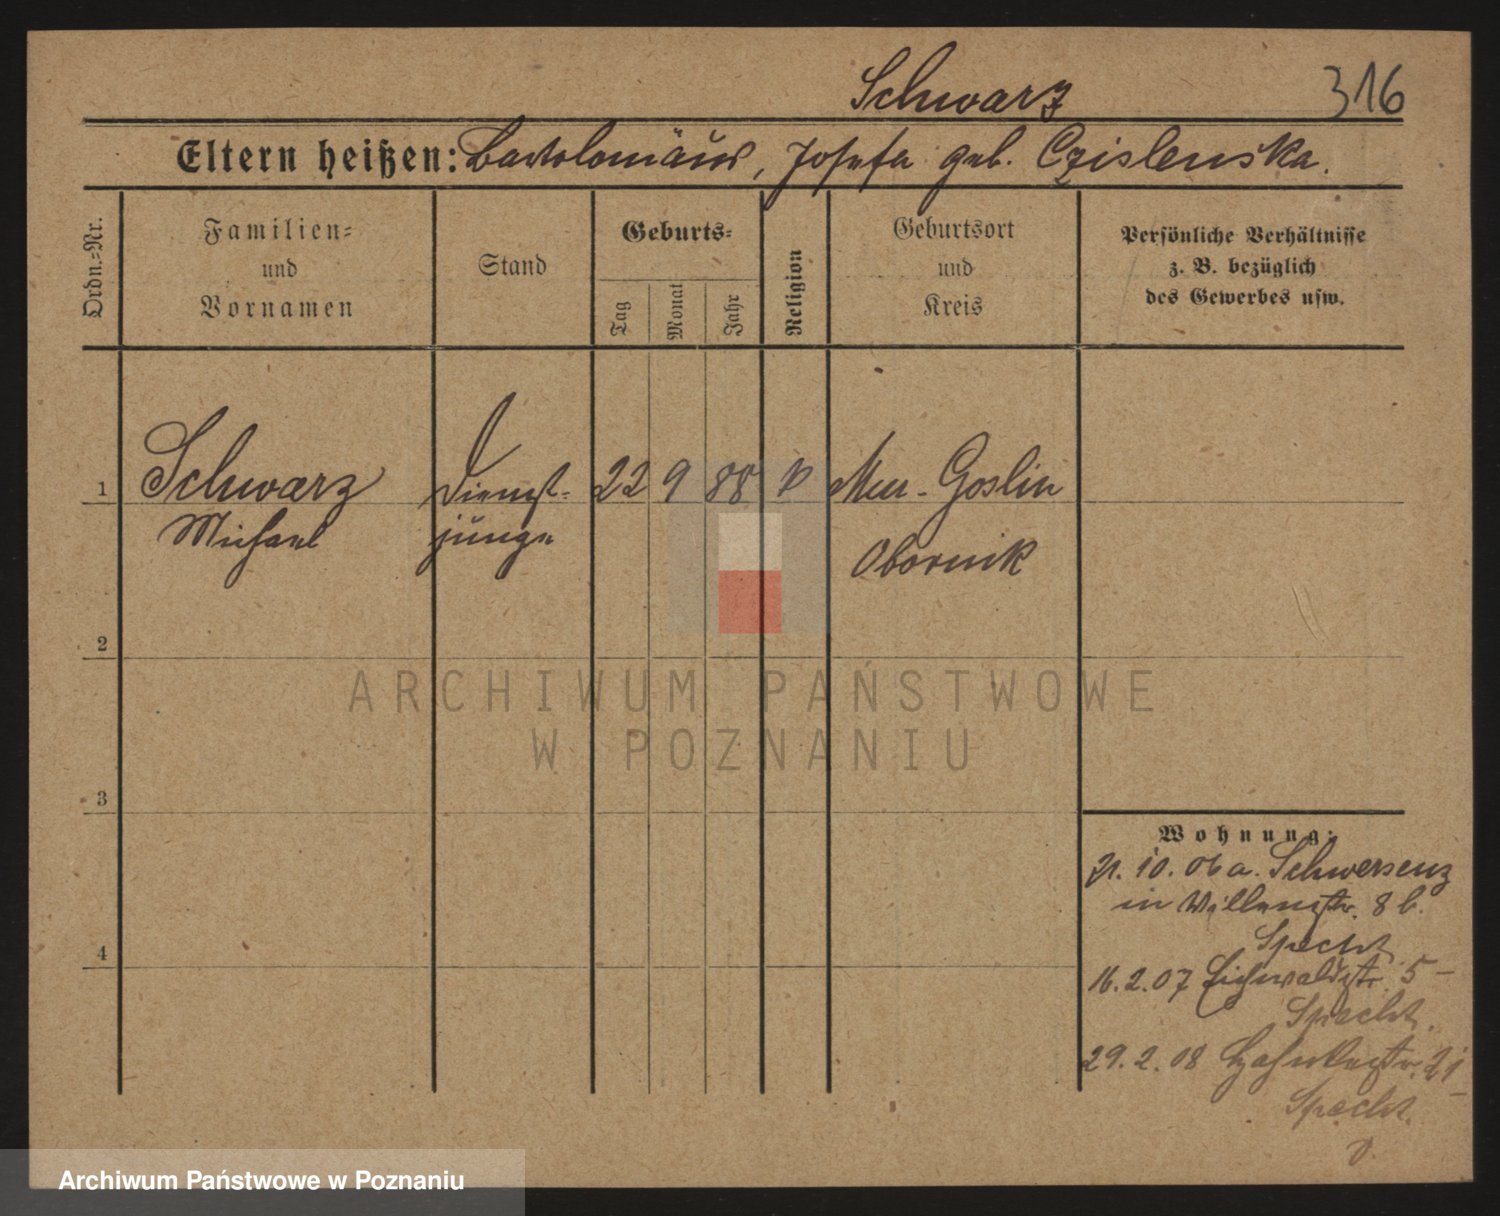 Schwarz
316
Eltern heißen: Bartolomäus, Josefa geb. Czislenska.
Ordn.=Nr.
Familien=
und
Vornamen
Stand
Geburts=
Tag
Monat
Jahr
Religion
Geburtsort
und
Kreis
Persönliche Verhältnisse
z. B. bezüglich
des Gewerbes usw.
1
Schwarz
Michael
Dienst=
junge
22
9
88
Mur-Goslin
Obornik
2
3
4
Wohnung:
21. 10. 06 a. Schwersenz
in 8 b.
Specht
16. 2. 07 Eichwaldstr. 5 –
Specht.
29. 2. 08 21
Specht.
ARCHIWUM PAŃSTWOWE
W POZNANIU
Archiwum Państwowe w Poznaniu